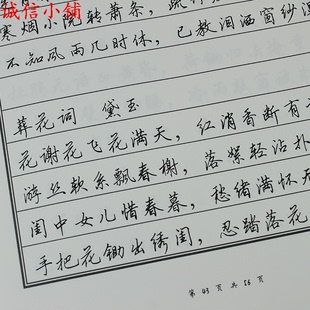 诚信小铺
寒烟小院转萧条，疏竹
不知风雨几时休，已教泪洒窗纱湿
葬花词 黛玉
花谢花飞花满天，红消香断有
游丝软系飘春榭，落絮轻沾扑
闺中女儿惜春暮，愁绪满怀无
手把花锄出绣闺，忍踏落花
第 43 页 共 56 页